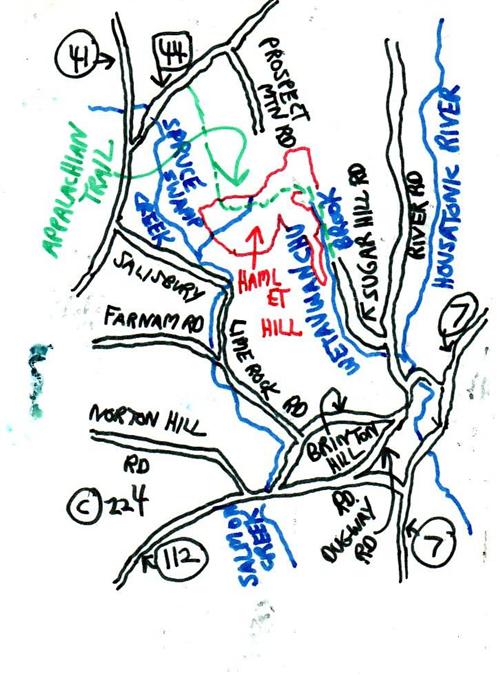 41
44
PROSPECT
MTN RD
APPALACHIAN
TRAIL
SPRUCE
SWAMP
CREEK
HOUSATONIC RIVER
RIVER RD
SUGAR HILL RD
WETAUWANCHU
BROOK
SALISBURY
HAML
ET
HILL
FARNAM RD
LIME ROCK RD
7
NORTON HILL
RD
BRINTON
HILL
RD
DUGWAY
RD
© 224
SALMON
CREEK
112
7